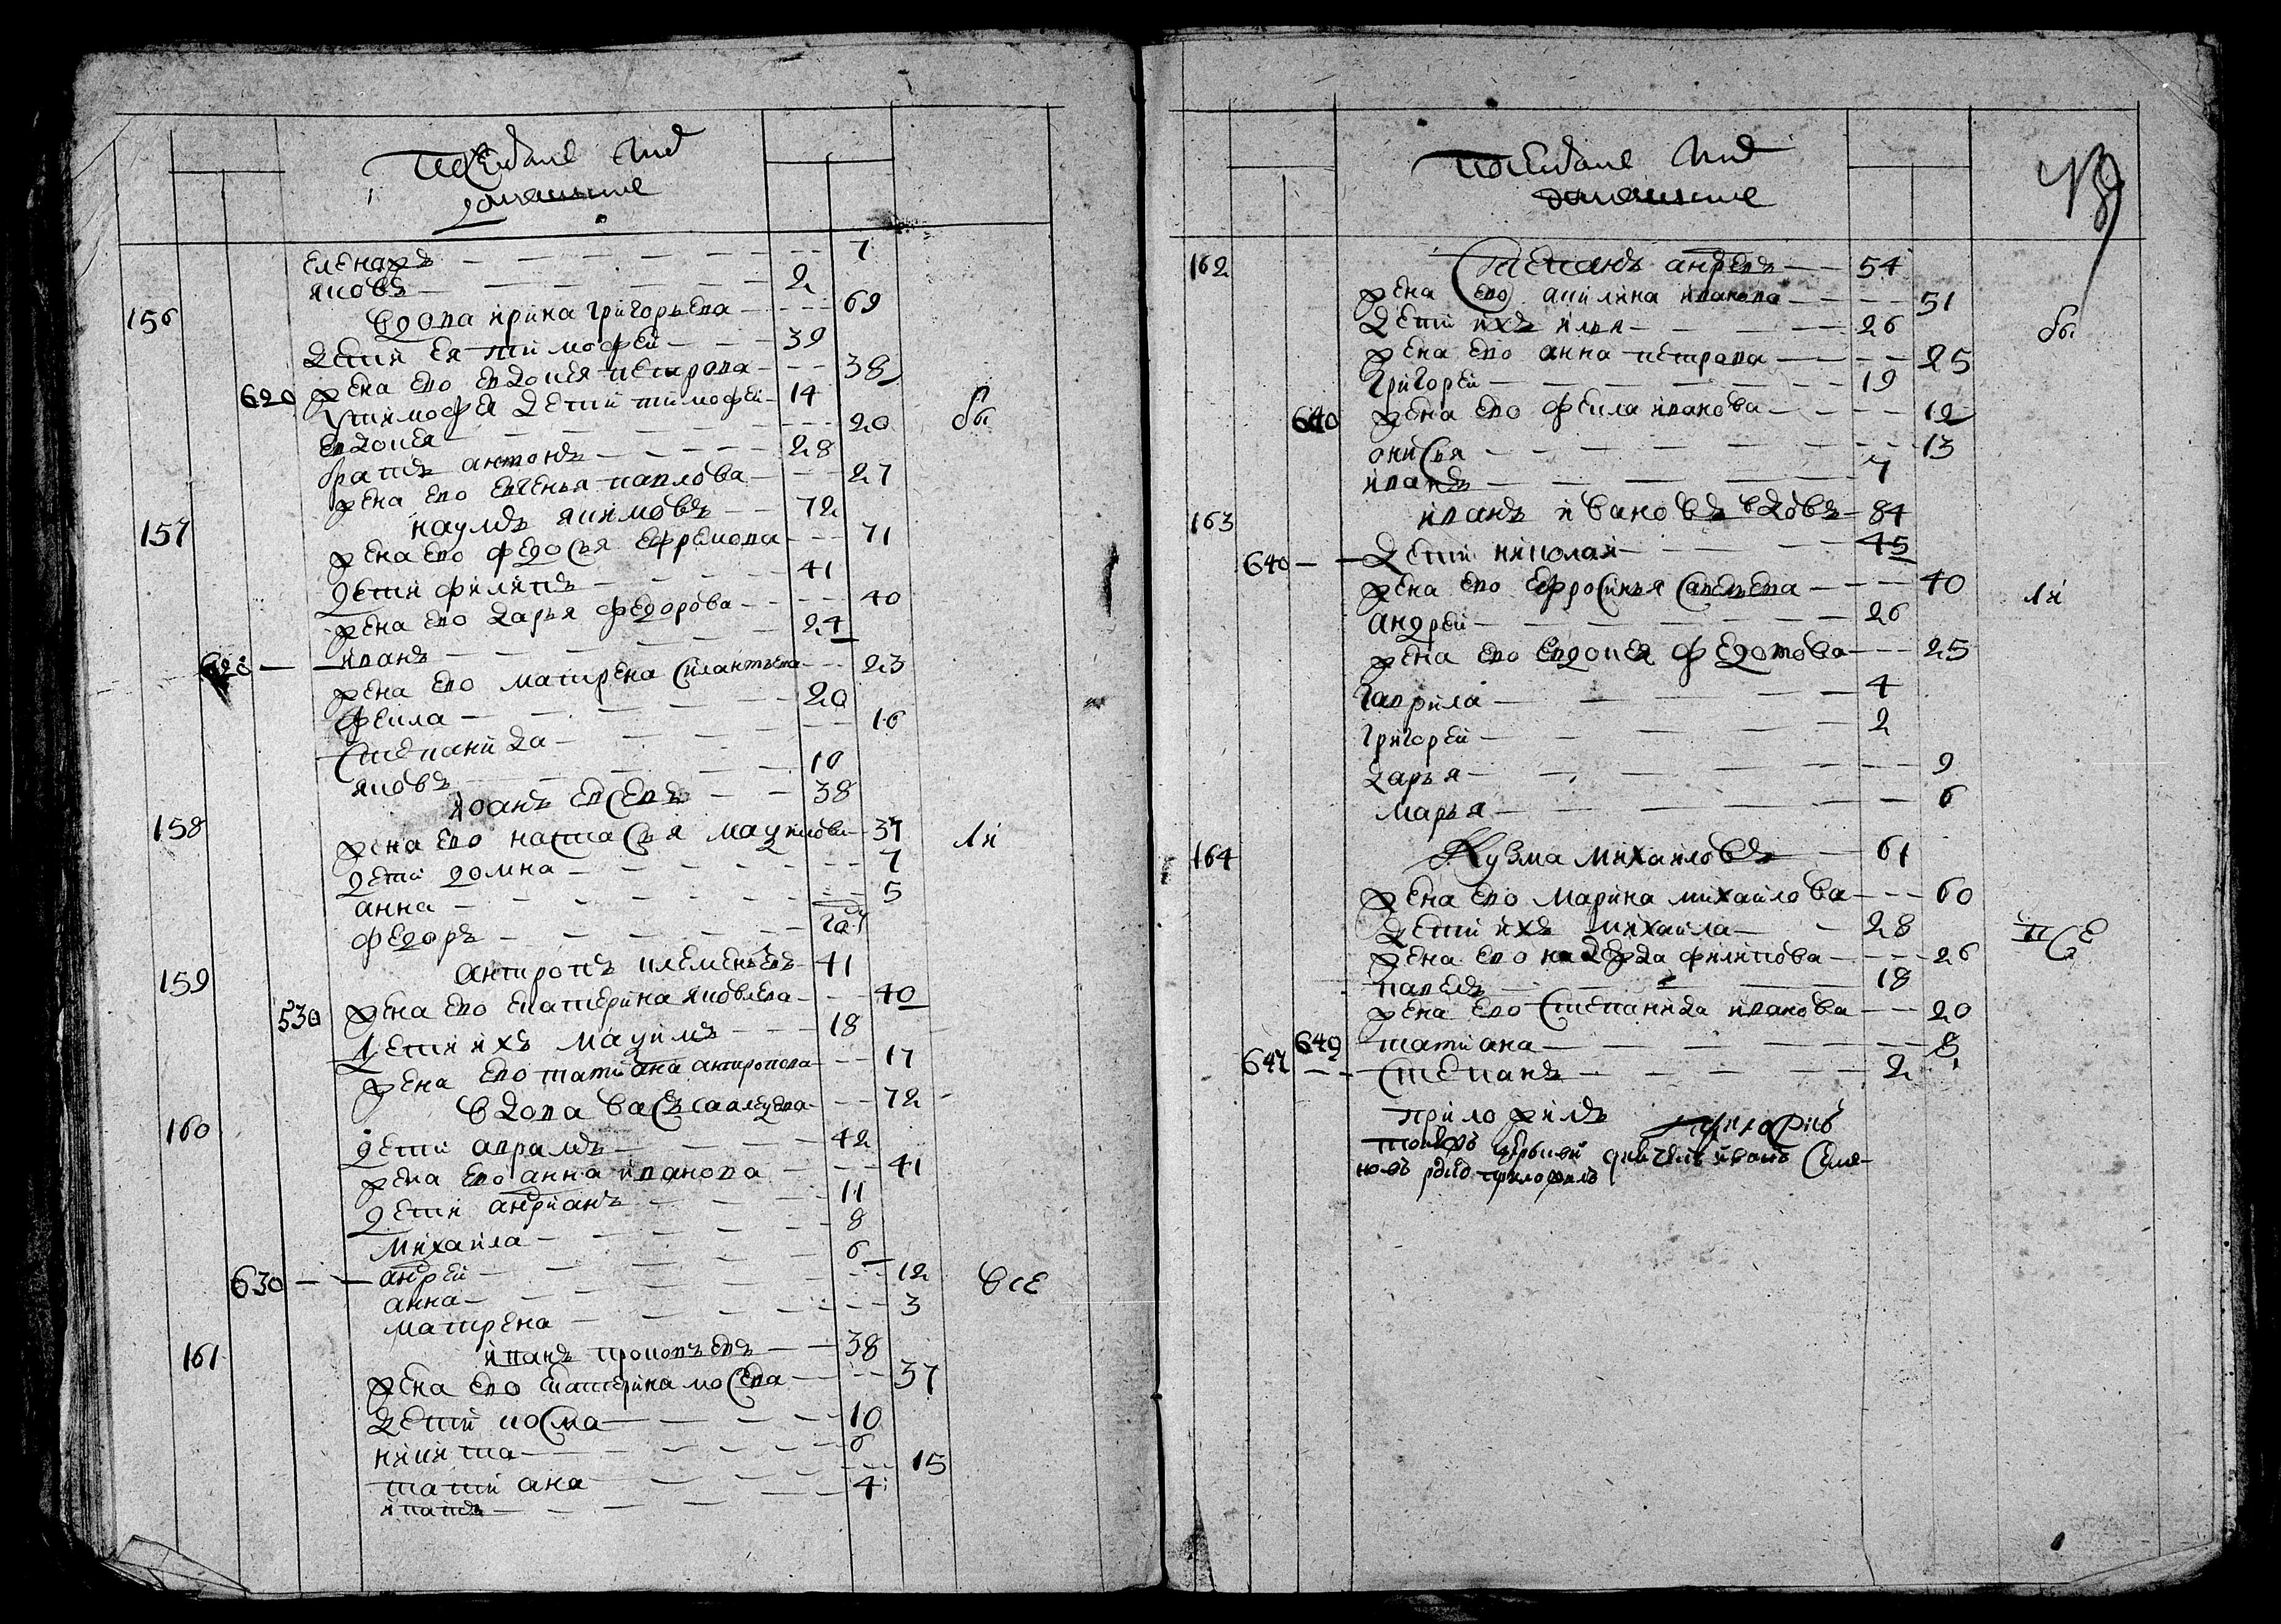 посацкие люди
домашние
еленаръ — 7
яковъ — 2
156 вдова ирина григорьева — 69
дети ея тимофей — 39
жена ево евдокея петрова — 38
620 у тимофея дети тимофей — 14
евдокея — 20
братъ антонъ — 28
жена ево евгенья павлова — 27
157 наумъ якимовъ — 72
жена ево федосья ефремова — 71
дети филипъ — 41
жена ево дарья федорова — 40
иванъ — 24
жена ево матрена силантьева — 23
фекла — 20
степанида — 16
яковъ — 10
158 иванъ евсевъ — 38
жена ево настасья мауилова — 37 ли
дети домна — 7
анна — 5
федоръ — год
159 антропъ клементьевъ — 41
530 жена ево екатерина яковлева — 40
дети ихъ мауимъ — 18
жена ево татиана антропова — 17
160 вдова васса алеуева — 72
дети аврамъ — 42
жена ево анна иванова — 41
дети андрианъ — 11
михаила — 8
630 — андрей — 6
анна — 12 все
матрена — 3
161 иванъ прокопьевъ — 38
жена ево екатерина мосева — 37
дети косма — 10
никита — 6
татиана — 15
игнатъ — 4
посацкие люди
домашние
162 степанъ андреевъ — 54
жена ево акилина иванова — 51
дети ихъ илья — 26 бы
жена ево анна петрова — 25
григорей — 19
640 жена ево фекла иванова — 19
онисья — 13
иванъ — 7
163 иванъ ивановъ вдовъ — 84
640 — дети николай — 45
жена ево ефросинья савельева — 40 ли
андрей — 26
жена ево евдокея федотова — 25
гаврила — 4
григорей — 2
дарья — 9
марья — 6
164 кузма михайловъ — 61
жена ево марина михаилова — 60
дети ихъ михаила — 28 псе
жена ево надежда филипова — 26
павелъ — 18
жена ево степанида иванова — 20
649 татиана — 8
647 — степанъ — 2
приложилъ приложилъ
церкви дьячекъ иванъ симе-
новъ руку приложилъ